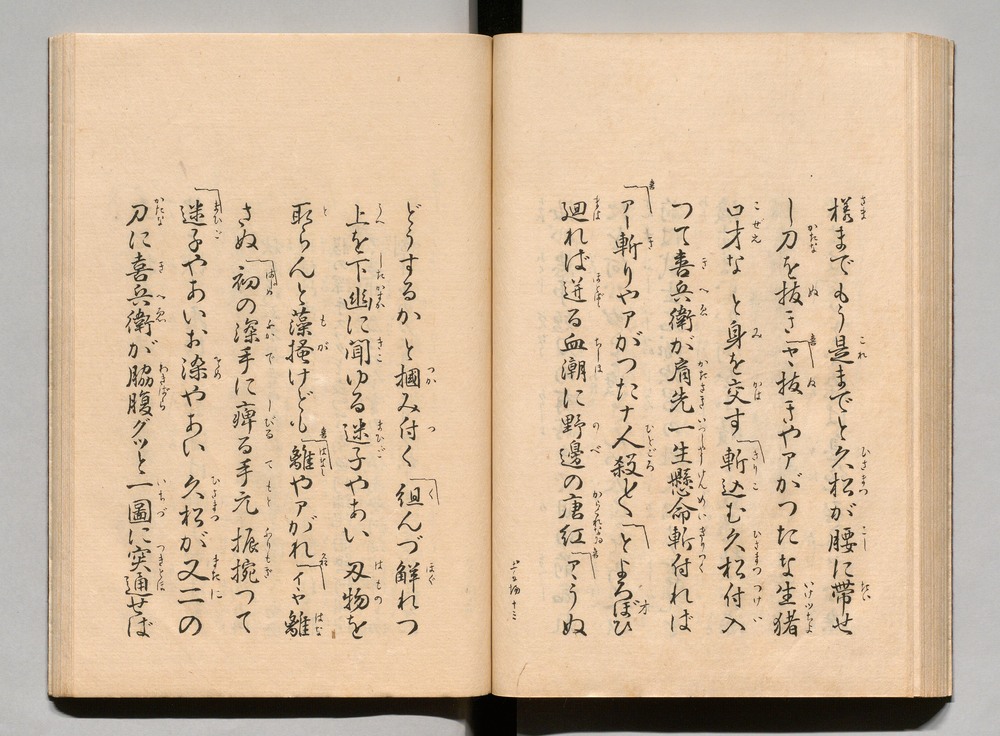 様までもう是までと久松が腰に帯せ
し刀を抜き ヤ抜きやアがつたな生猪
口才な と身を交す 斬込む久松付入
つて喜兵衛が肩先一生懸命斬付れば
アー斬りやアがつたナ人殺と とよろぼひ
廻れば迸る血潮に野邊の唐紅 アうぬ
どうするか と摑み付く 組んづ觧れつ
上を下幽に聞ゆる迷子やあい 刄物を
取らんと藻掻けども 離やアがれ イヤ離
さぬ 初の深手に痺る手元 振捥つて
迷子やあいお染やあい 久松が又二の
刀に喜兵衛が脇腹グッと一圖に突通せば